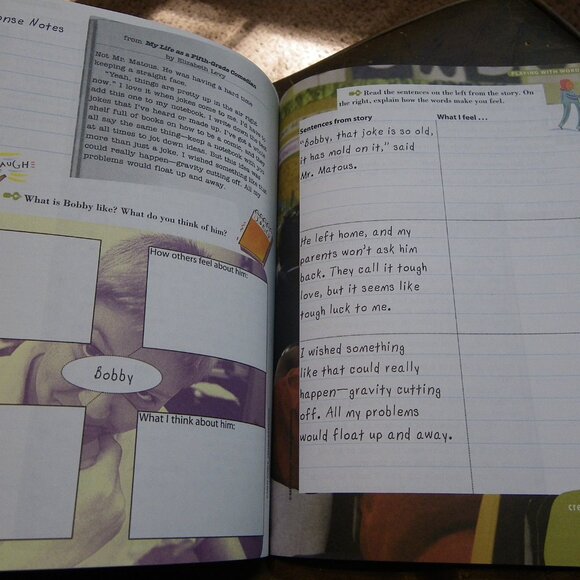 onse Notes
from My Life as a Fifth-Grade Comedian
by Elizabeth Levy
Not Mr. Matous. He was having a hard time
keeping a straight face.
"Yeah, things are pretty up in the air right
now." I love it when jokes come to me. I'd have to
add this one to my notebook. I write down the best
jokes that I've heard or made up. I've got a whole
shelf full of books on how to be a comic, and they
all say the same thing—keep a notebook with you
at all times to jot down ideas. But this idea was
more than just a joke. I wished something like that
could really happen—gravity cutting off. All my
problems would float up and away.
LAUGH
What is Bobby like? What do you think of him?
How others feel about him:
Bobby
What I think about him:
PLAYING WITH WORDS
Read the sentences on the left from the story. On
the right, explain how the words make you feel.
Sentences from story
What I feel . . .
"Bobby, that joke is so old,
it has mold on it," said
Mr. Matous.
He left home, and my
parents won't ask him
back. They call it tough
love, but it seems like
tough luck to me.
I wished something
like that could really
happen—gravity cutting
off. All my problems
would float up and away.